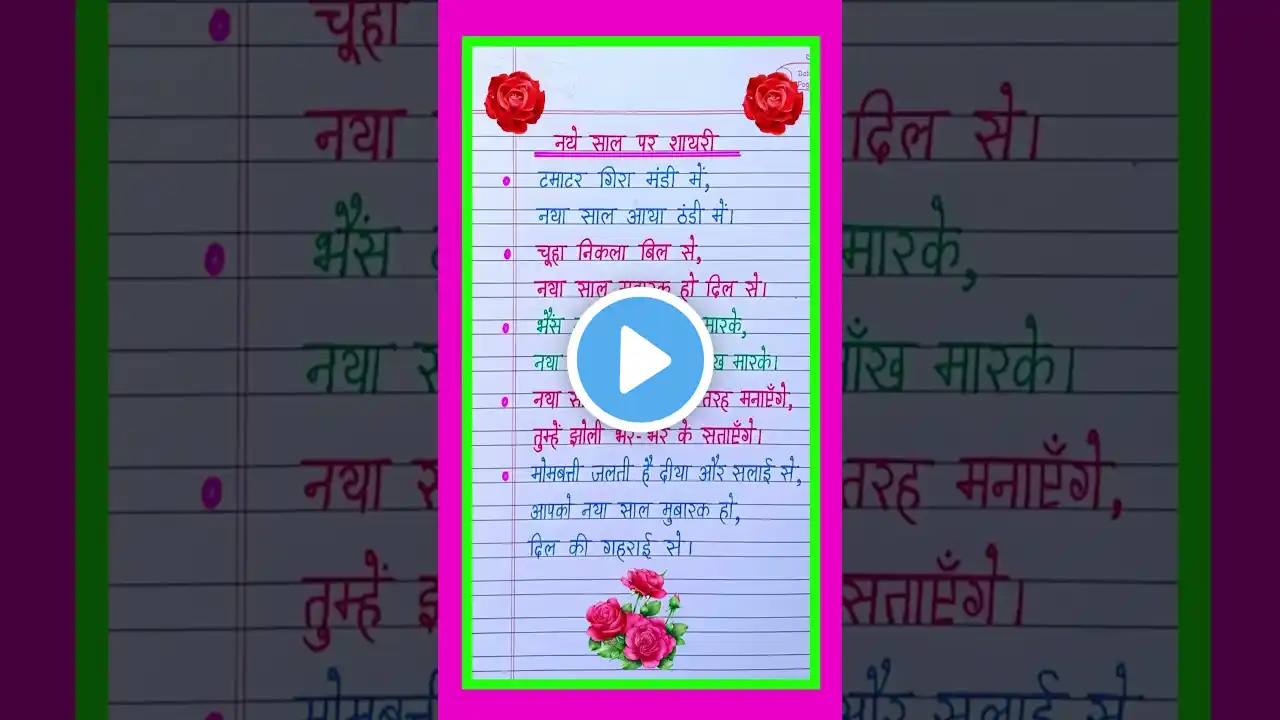 नये साल पर शायरी
टमाटर गिरा मंडी में,
नया साल आया ठंडी में।
चूहा निकला बिल से,
नया साल मुबारक हो दिल से।
भैंस मारके,
नया मारके।
नया तरह मनाएँगे,
तुम्हें झोली भर-भर के सताएँगे।
मोमबत्ती जलती है दीया और सलाई से,
आपको नया साल मुबारक हो,
दिल की गहराई से।